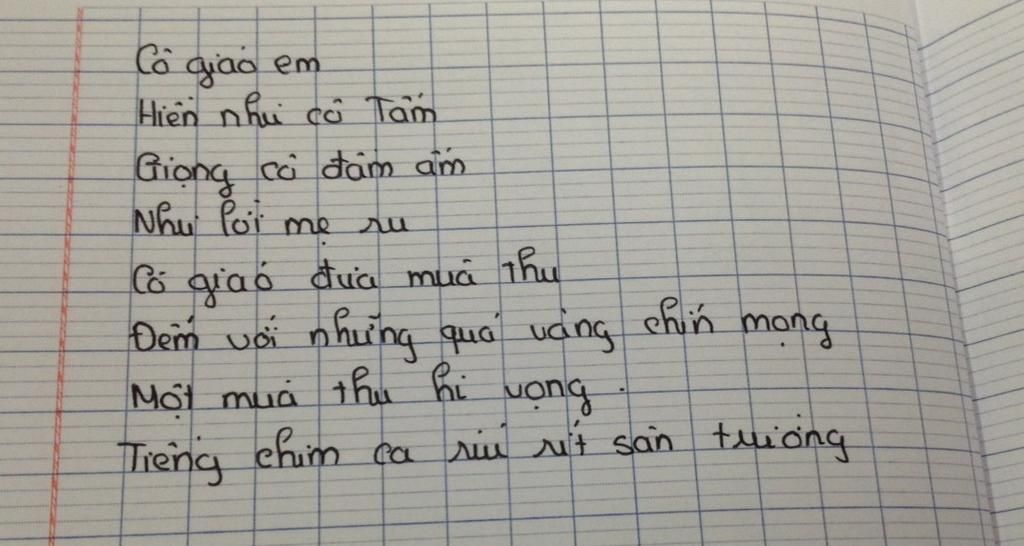 Cô giáo em
Hiền như cô Tấm
Giọng cô đầm ấm
Như lời mẹ ru
Cô giáo đưa mùa thu
Đến với những quả vàng chín mọng
Một mùa thu hi vọng.
Tiếng chim ca ríu rít sân trường